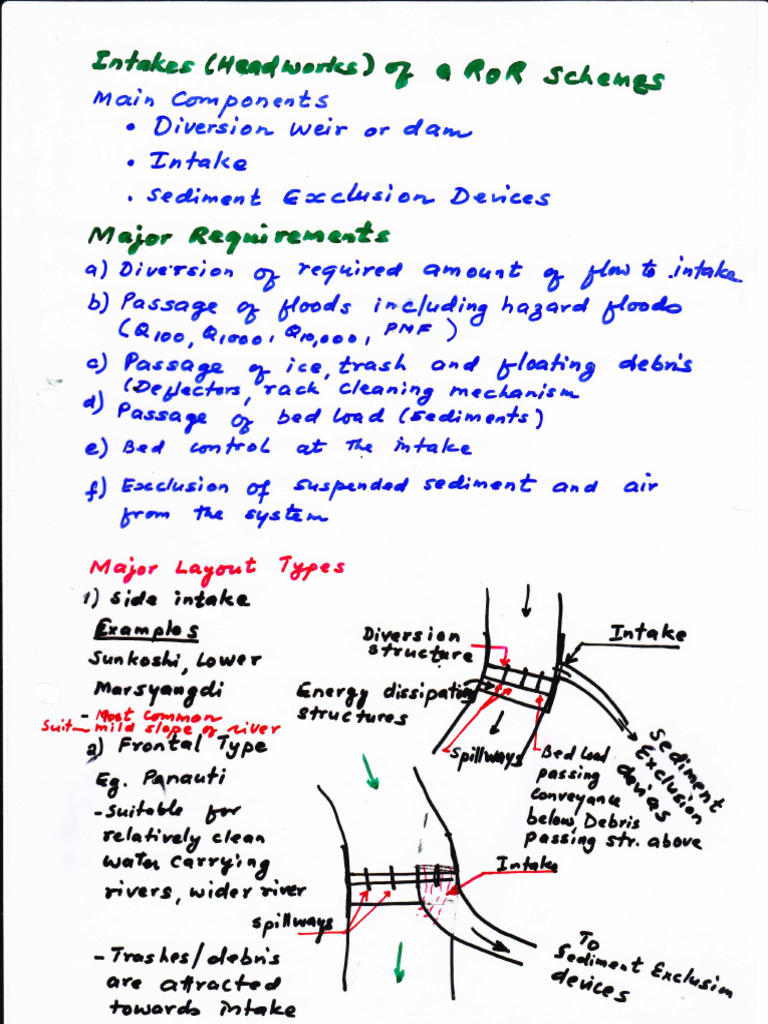 Intakes (Headworks) of a RoR Schemes
Main Components
• Diversion Weir or dam
• Intake
• Sediment Exclusion Devices
Major Requirements
a) Diversion of required amount of flow to intake
b) Passage of floods including hazard floods
(Q100, Q1000, Q10,000, PMF)
c) Passage of ice, trash and floating debris
(Deflectors, rack cleaning mechanism
d) Passage of bed load (sediments)
e) Bed control at The intake
f) Exclusion of suspended sediment and air
from the system
Major Layout Types
1) Side intake
Examples
Sunkoshi, Lower
Marsyangdi
- Most common
Suit— mild slope of river
2) Frontal Type
Eg. Panauti
- Suitable for
relatively clean
water carrying
rivers, wider river
- Trashes/debris
are attracted
towards intake
Diversion
structure
Energy dissipating
structures
Intake
Spillways
Bed load
passing
conveyance
below, Debris
passing str. above
Sediment
Exclusion
devices
Intake
Spillways
To
Sediment Exclusion
devices